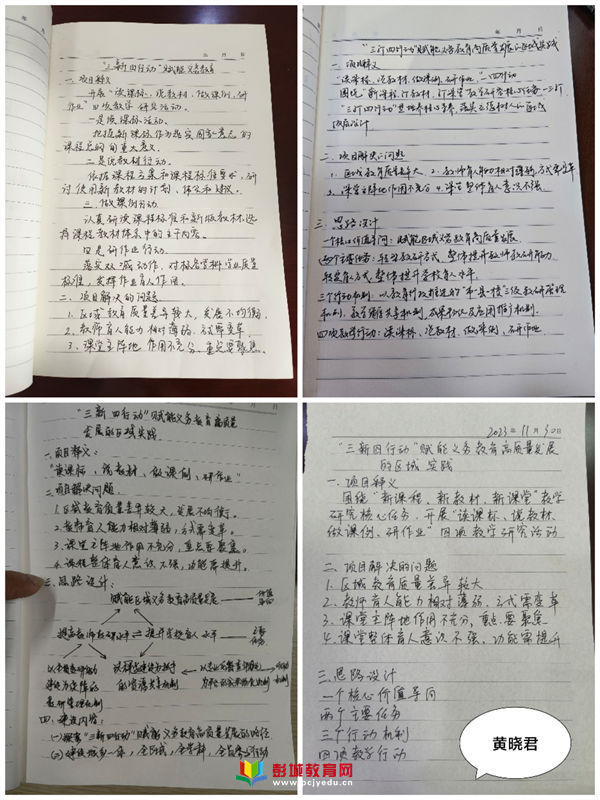 年 月 日
"三新四行动"赋能义务教育
一.项目释义
开展"读课标、说教材、做课例、研
作业"四项教学研究活动。
一是读课标活动。
二是说教材行动。
依据课程方案和课程标准要求，研
讨使用新教材的计划、体会和建议。
三、做课例行动
认真研读课程标准和新版教材，选
择课程教材体系中的主干内容。
四是研作业行动
标准，发挥作业育人作用。
二、项目解决的问题
1.区域教育质量差异较大，发展不均衡。
2.教师育人能力相对薄弱，方式需变革。
3、课堂主阵地作用不充分，重点要聚焦。
年 月 日
"三新四行动"赋能义务教育高质量发展的区域实践
一.项目释义
"读课标、说教材、做课例、研作业"一四行动
二、项目解决的问题
1.区域教育质量差异大，2.教师育人能力相对薄弱，方式需变革
3.课堂主阵地作用不充分 4.课程整体育人意识不强。
三、思路设计
一个核心价值导向：赋能区域义务教育高质量发展。
四项教学行动：读课标、说教材、做课例、研作业
年 月 日
"三新四行动"赋能义务教育高质量
发展的区域实践
一.项目释义：
"读课标、说教材、做课例、研作业"
二.项目解决问题：
1.区域教育质量差异较大，发展不均衡。
2.教师育人能力相对薄弱，方式需变革。
3.课堂主阵地作用不充分，重点要聚焦。
4.课程整体育人意识不强，功能需提升。
三.思路设计：
赋能区域义务教育高质量发展 价值导向
提高教师教研水平 提升学校育人水平 主要任务
四、建设内容：
(一)探索"三新四行动"赋能义务教育高质量发展的路径
2023年11月30日
"三新四行动"赋能义务教育高质量发展
的区域实践
一.项目释义
围绕"新课程、新教材、新课堂"教学
研究核心任务，开展"读课标、说教材、
做课例、研作业"四项教学研究活动
二.项目解决的问题
1.区域教育质量差异较大
2.教师育人能力相对薄弱，方式需变革
3.课堂主阵地作用不充分，重点要聚焦
4.课程整体育人意识不强，功能需提升
三.思路设计
一个核心价值导向
两个主要任务
三个行动机制
四项教学行动
黄晓君
彭城教育网
www.pcjyedu.cn